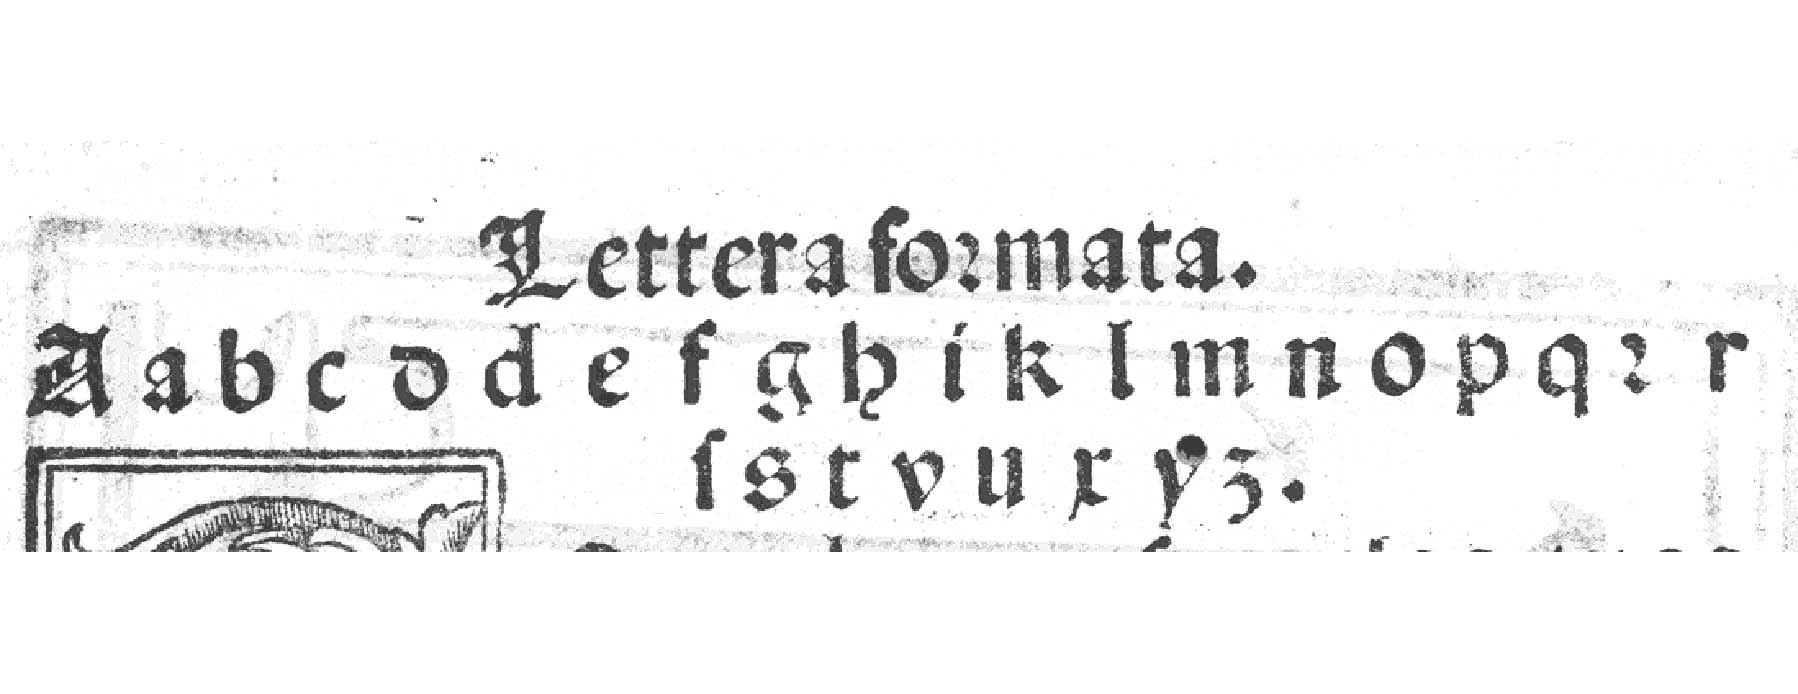 Lettera foꝛmata.
A a b c d d e f g h i k l m n o p q ꝛ r
ſ s t v u x y z.